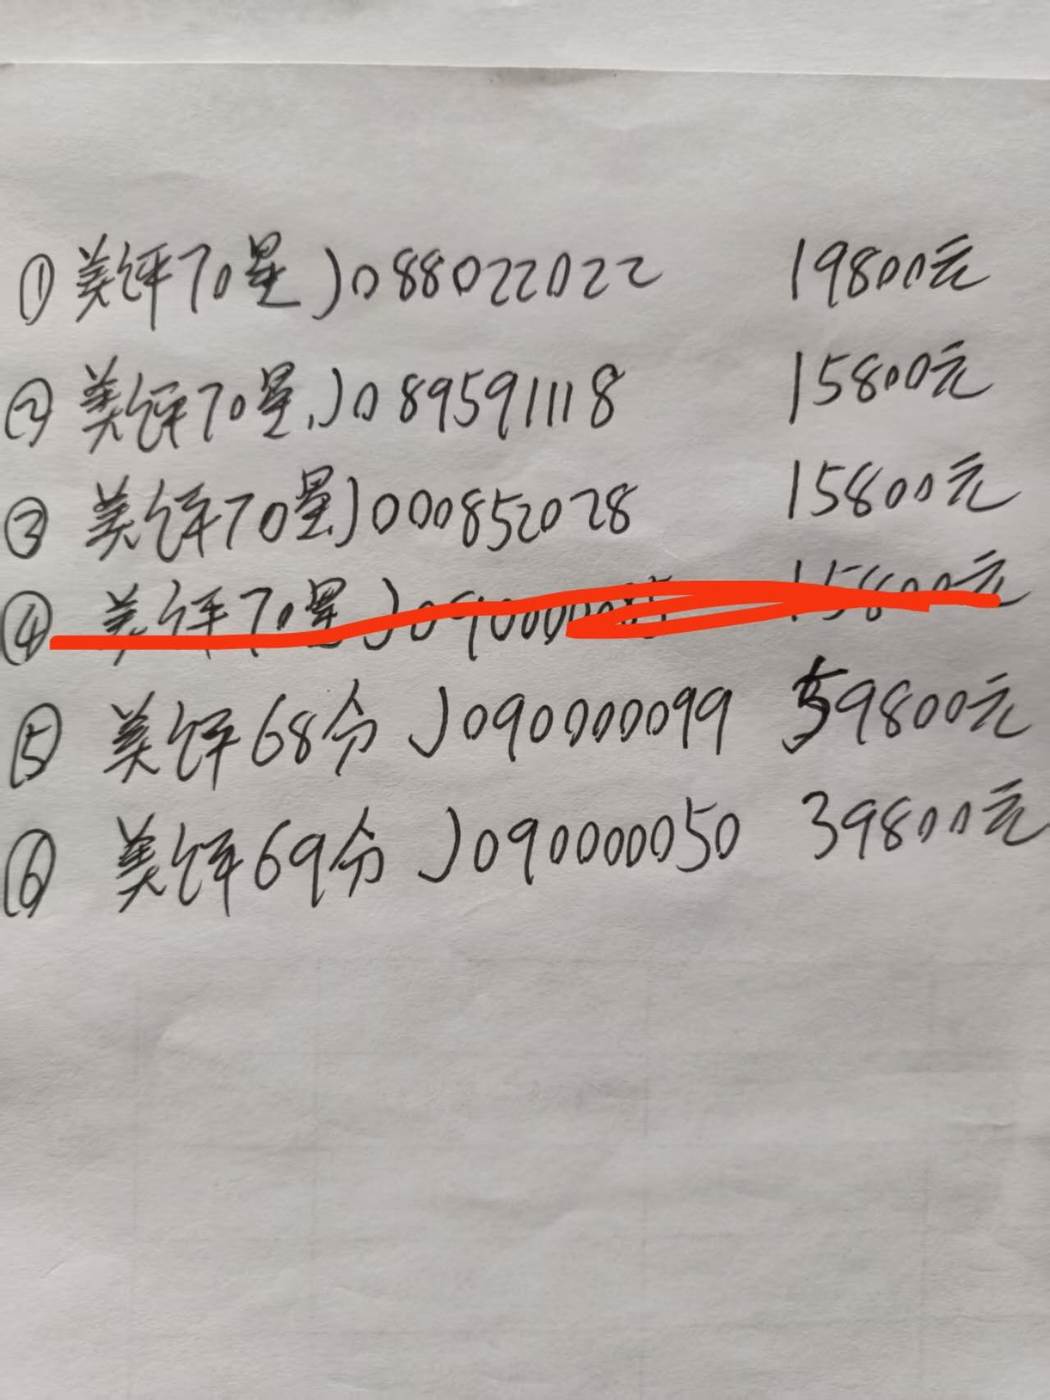 ①美评70星J088022022 19800元
②美评70星J089591118 15800元
③美评70星J000852028 15800元
④美评70星J0900000 15800元
⑤美评68分J090000099 59800元
⑥美评69分J090000050 39800元